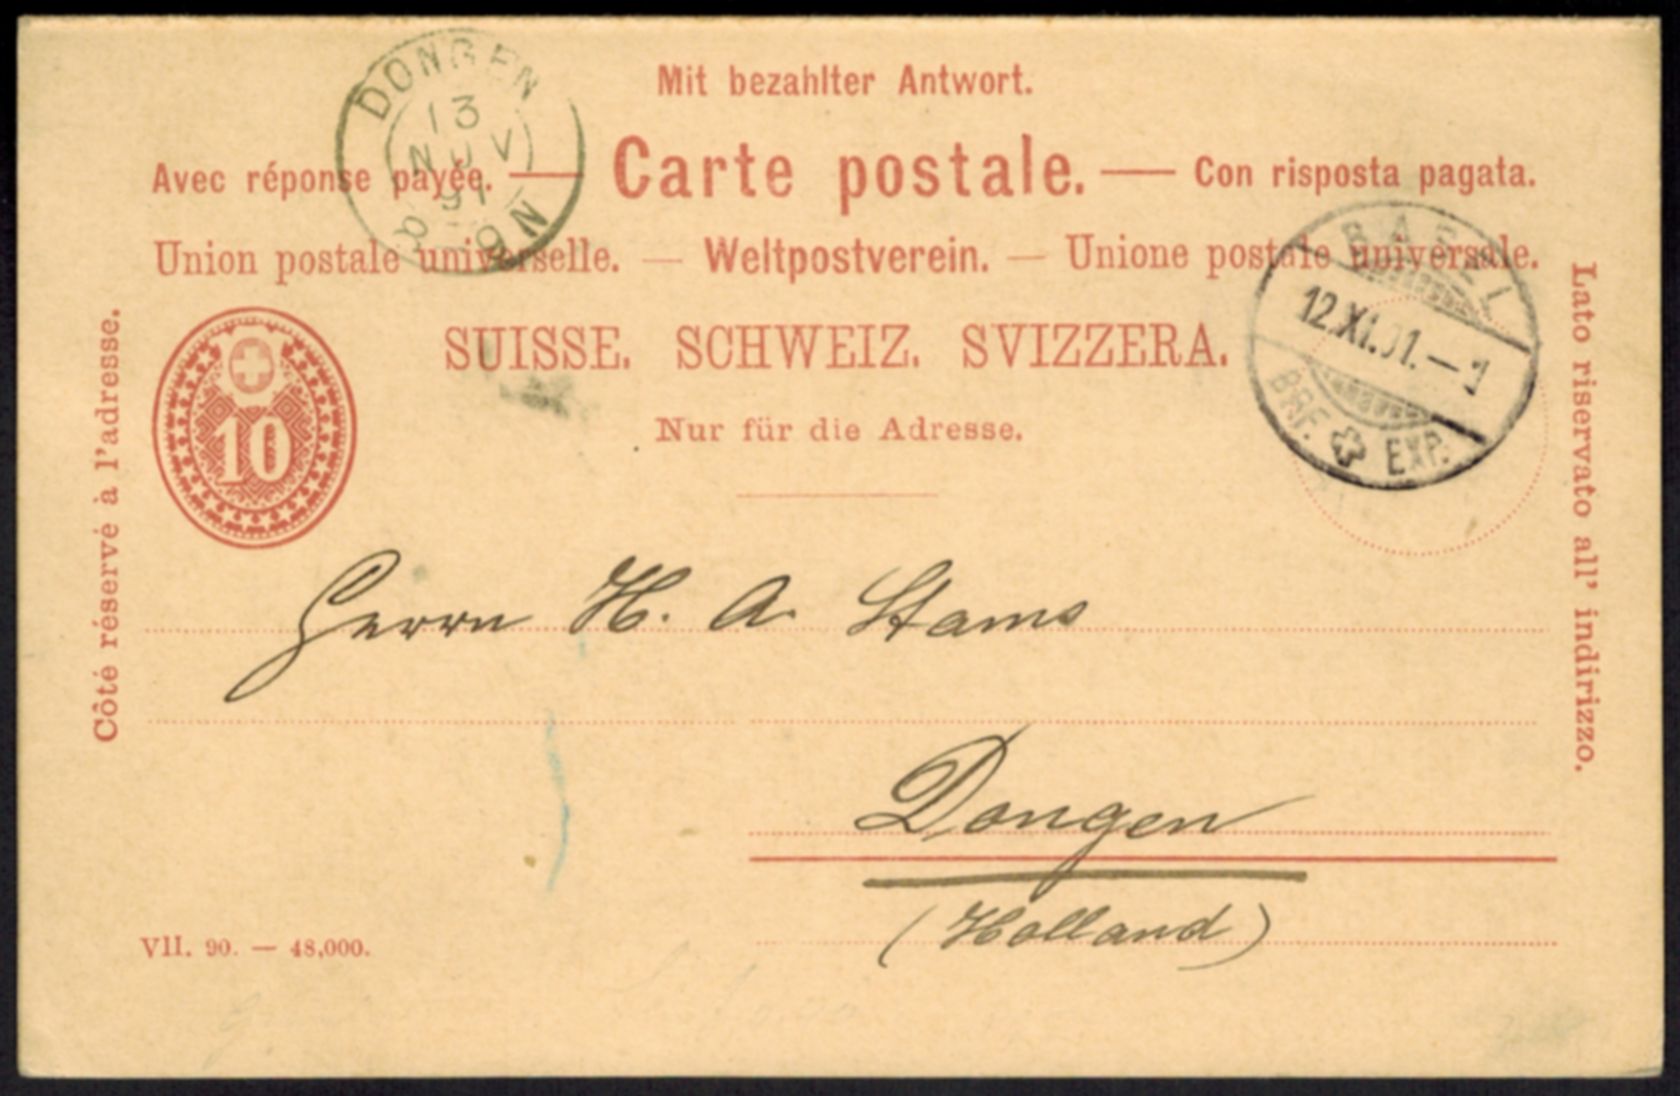 Mit bezahlter Antwort.
Avec réponse payée. — Carte postale. — Con risposta pagata.
Union postale universelle. — Weltpostverein. — Unione postale universale.
SUISSE. SCHWEIZ. SVIZZERA.
Nur für die Adresse.
Côté réservé à l'adresse.
Lato riservato all' indirizzo.
10
DONGEN
13
NOV
91
8-9N
BASEL
12.XI.91.—1
BRF. EXP.
Herrn H. A. Stams
Dongen
(Holland)
VII. 90. — 48,000.